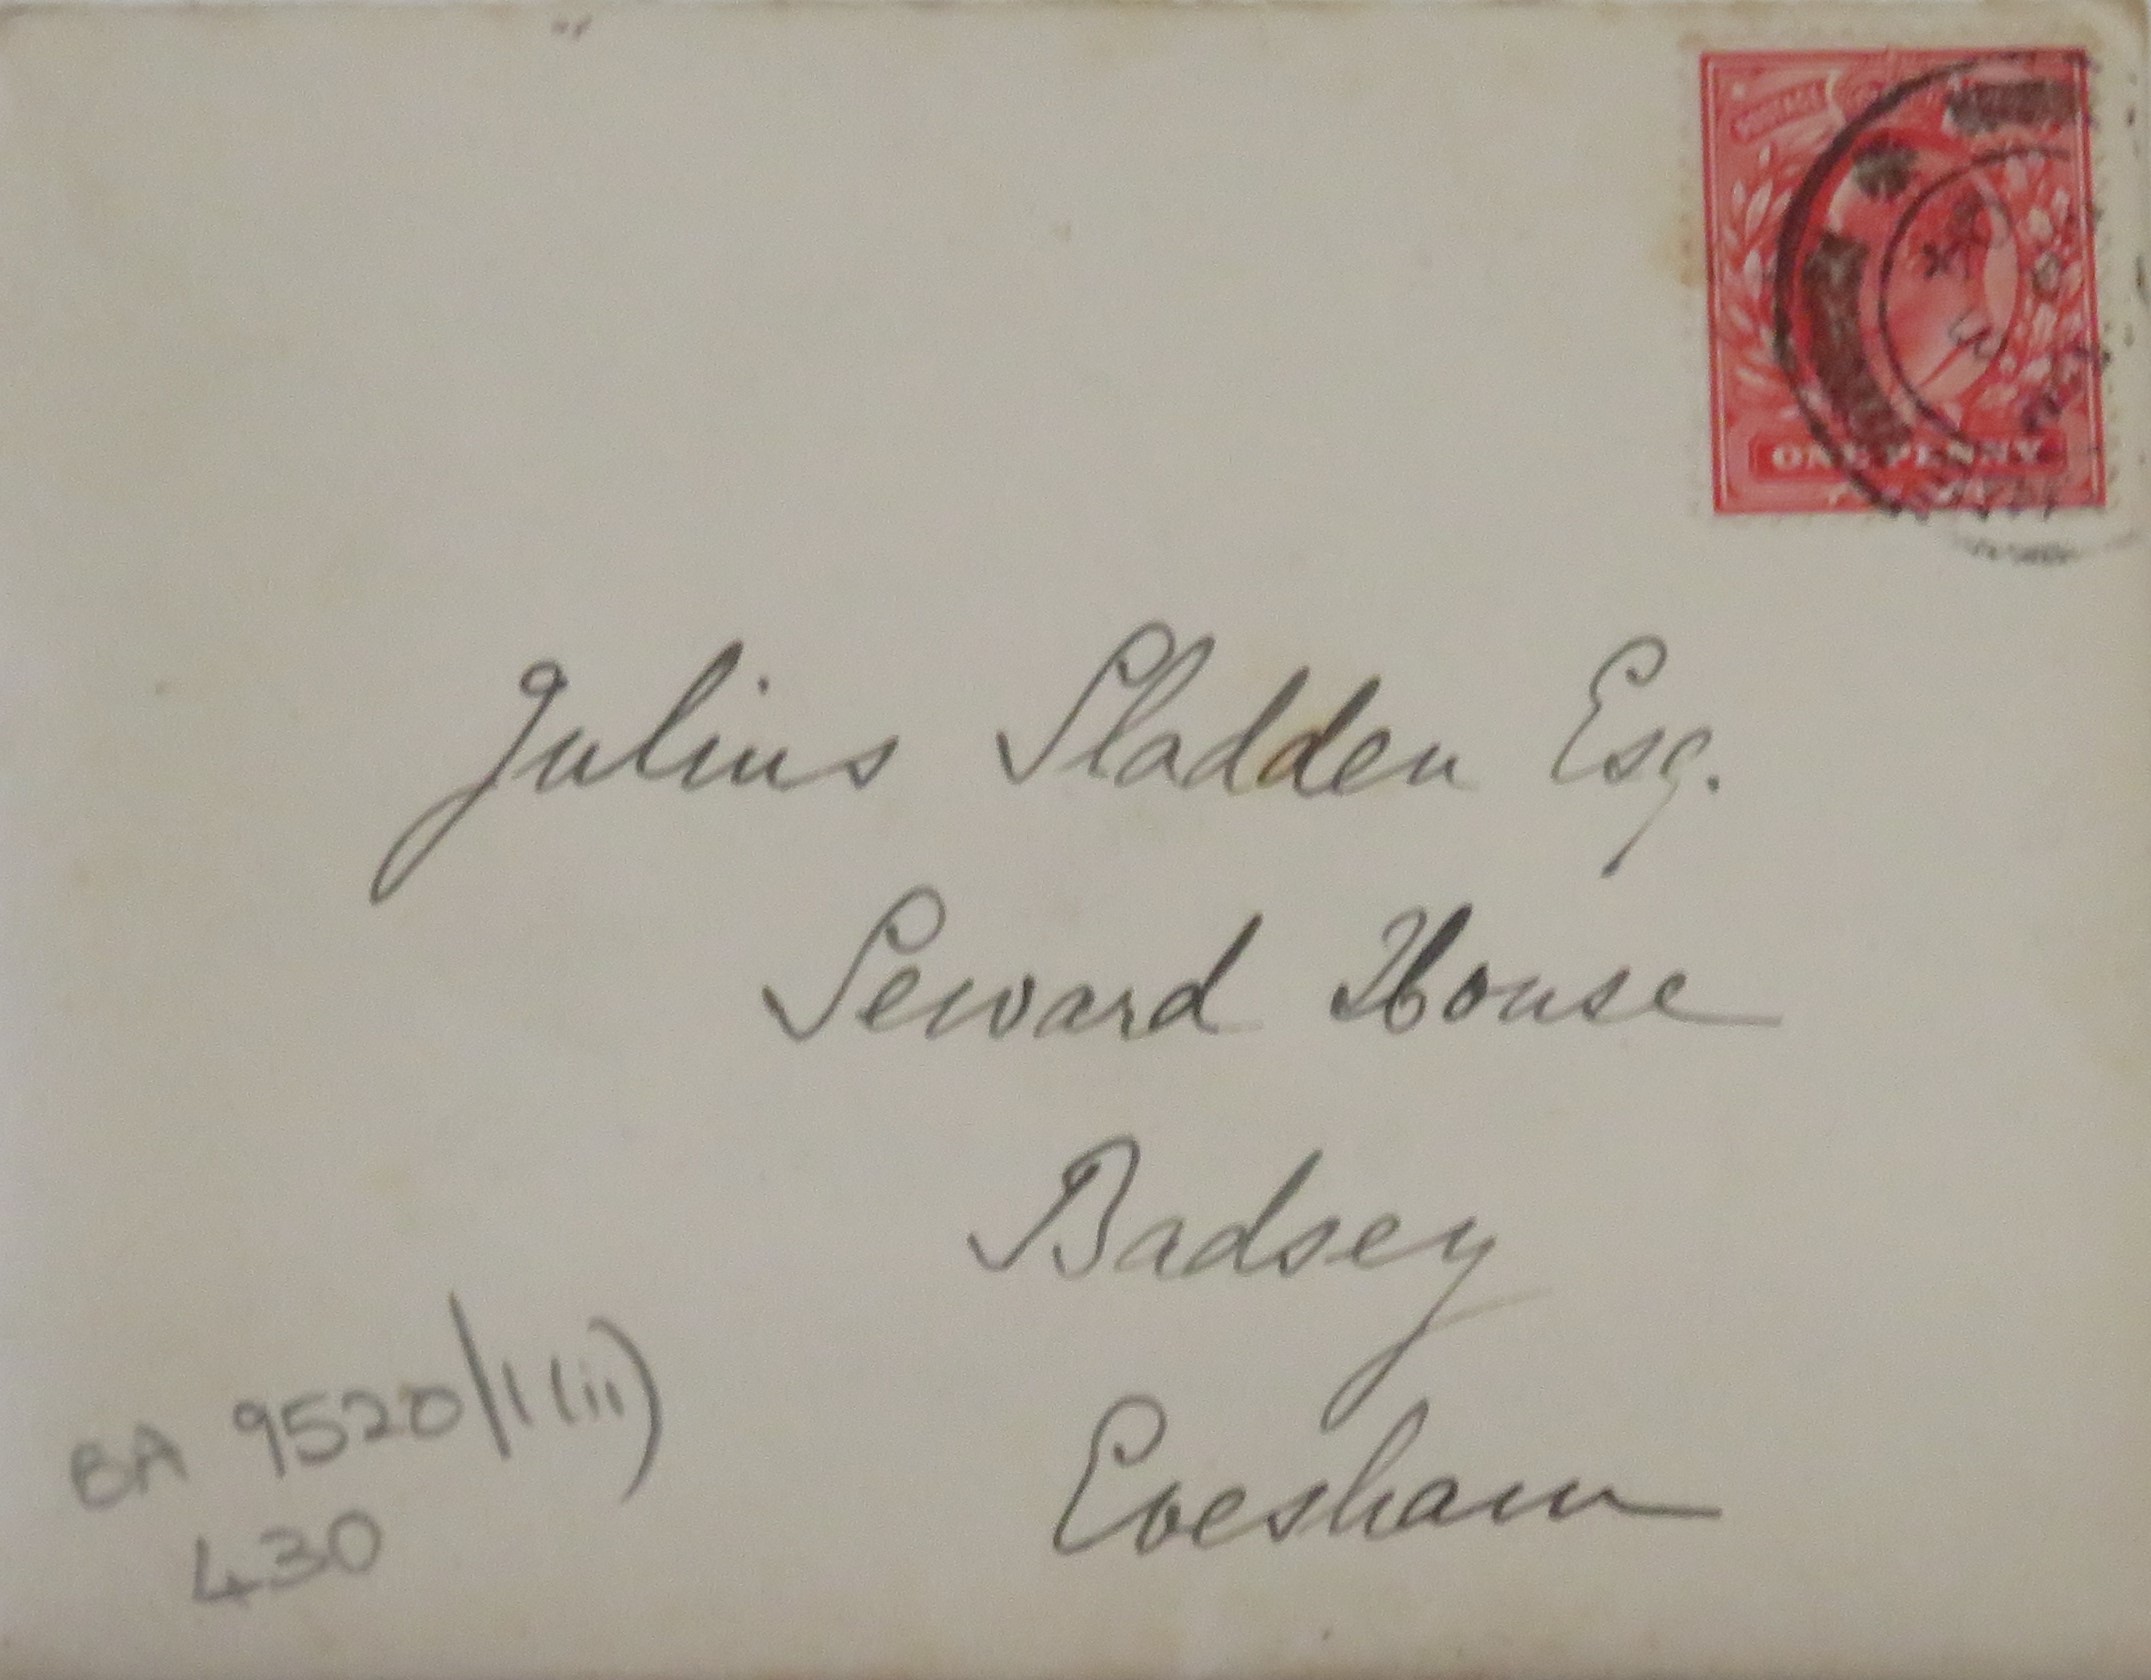 POSTAGE
ONE PENNY
Julius Sladden Esq.
Seward House
Badsey
Evesham
BA 9520/1(iii)
430